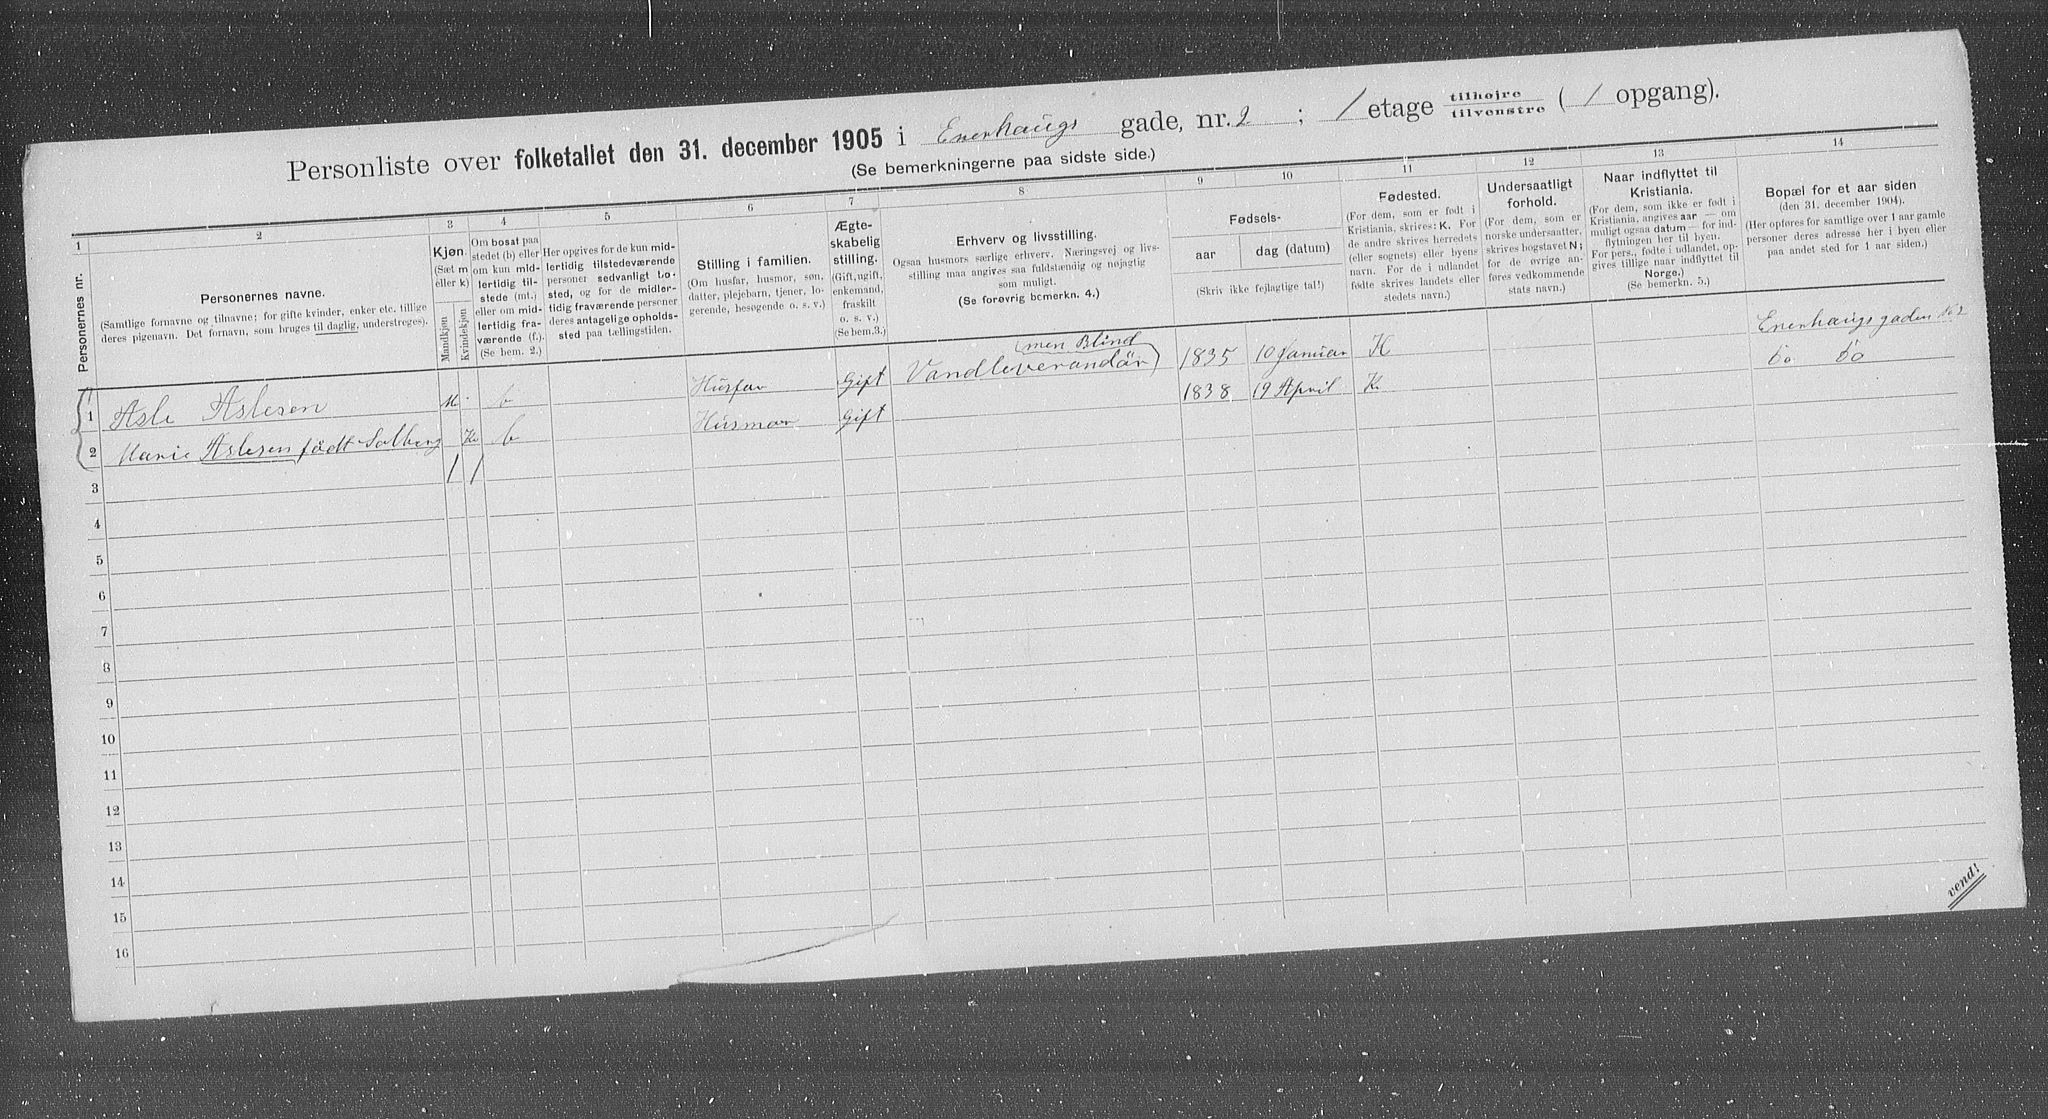 Personliste over folketallet den 31. december 1905 i Enerhaugs gade, nr. 2 ; 1 etage tilhøjre tilvenstre ( 1 opgang).
(Se bemerkningerne paa sidste side.)
1 2 3 4 5 6 7 8 9 10 11 12 13 14
Personernes nr.
Personernes navne.
(Samtlige fornavne og tilnavne; for gifte kvinder, enker etc. tillige
deres pigenavn. Det fornavn, som bruges til daglig, understreges).
Kjøn
(Sæt m
eller k)
Mandkjøn
Kvindekjøn
Om bosat paa
stedet (b) eller
om kun mid-
lertidig til-
stede (mt.)
eller om mid-
lertidig fra-
værende (f.).
(Se bem. 2.)
Her opgives for de kun mid-
lertidig tilstedeværende
personer sedvanligt bo-
sted, og for de midler-
tidig fraværende personer
deres antagelige opholds-
sted paa tællingstiden.
Stilling i familien.
(Om husfar, husmor, søn,
datter, plejebarn, tjener, lo-
gerende, besøgende o. s. v.)
Ægte-
skabelig
stilling.
(Gift, ugift,
enkemand,
fraskilt
o. s. v.)
(Se bem.3.)
Erhverv og livsstilling.
Ogsaa husmors særlige erhverv. Næringsvej og livs-
stilling maa angives saa fuldstændig og nøjagtig
som muligt.
(Se forøvrig bemerkn. 4.)
Fødsels-
aar dag (datum)
(Skriv ikke fejlagtige tal!)
Fødested.
(For dem, som er født i
Kristiania, skrives: K. For
de andre skrives herredets
(eller sognets) eller byens
navn. For de i udlandet
fødte skrives landets eller
stedets navn.)
Undersaatligt
forhold.
(For dem, som er
norske undersaatter,
skrives bogstavet N;
for de øvrige an-
føres vedkommende
stats navn.)
Naar indflyttet til
Kristiania.
(For dem, som ikke er født i
Kristiania, angives aar — om
muligt ogsaa datum — for ind-
flytningen her til byen.
For pers., fødte i udlandet, op-
gives tillige naar indflyttet til
Norge.)
(Se bemerkn. 5.)
Bopæl for et aar siden
(den 31. december 1904).
(Her opføres for samtlige over 1 aar gamle
personer deres adresse her i byen eller
paa andet sted for 1 aar siden.)
1 Asle Aslesen M. b Husfar Gift Vandleverandör (men Blind) 1835 10 Januar K Enerhaugsgaden No 2
2 Marie Aslesen födt Solberg K b Husmor Gift 1838 19 April K. do do
3 1 1
4
5
6
7
8
9
10
11
12
13
14
15
16
vend!